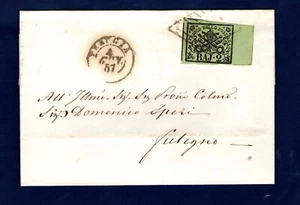 PERUGIA
GIU.
57
BAJ 2
All' Illmo. Sig. Sig Proñe Colmo.
Sig Domenico Speri
Fuligno